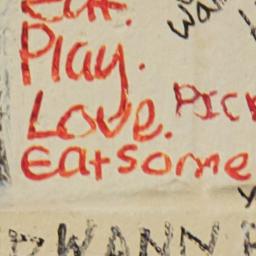 Eat.
Play.
Love.
Eat some
WANN